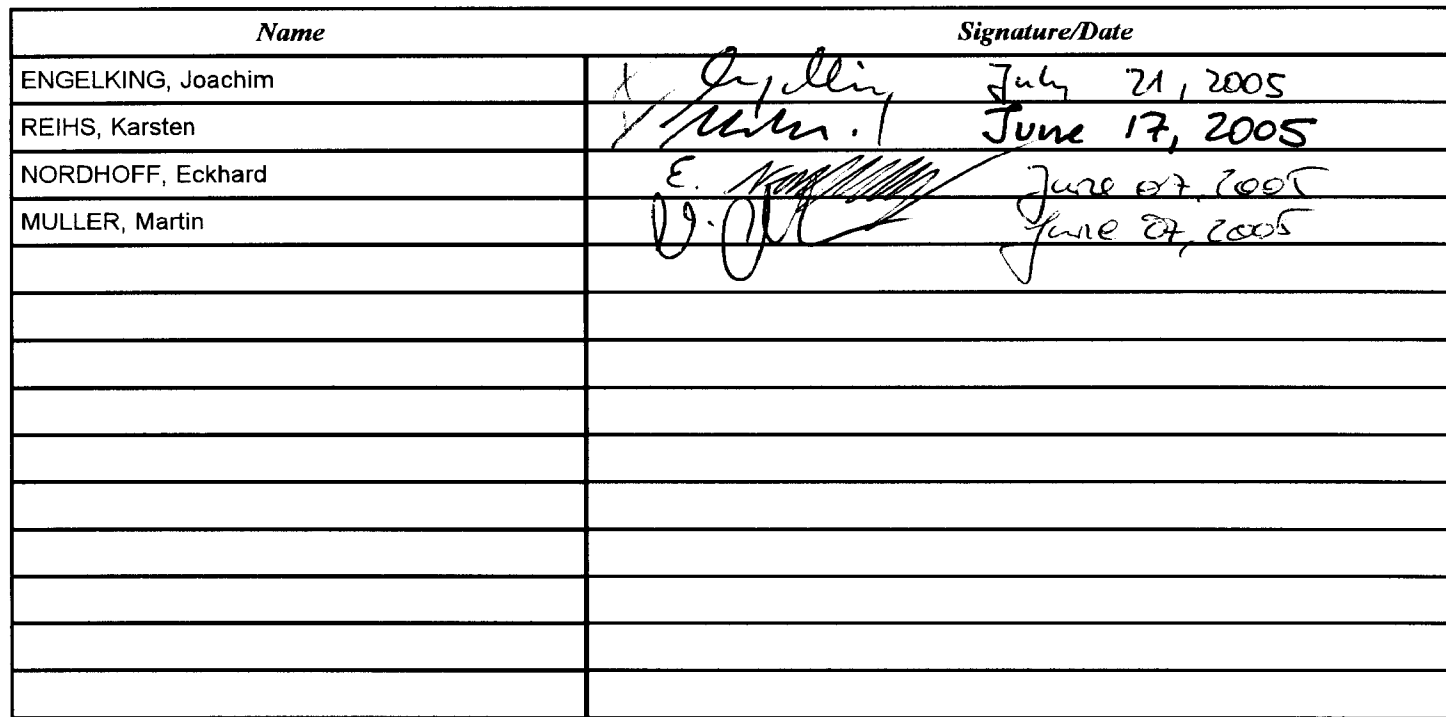 Name Signature/Date
ENGELKING, Joachim July 21, 2005
REIHS, Karsten June 17, 2005
NORDHOFF, Eckhard E. June 07, 2005
MULLER, Martin June 27, 2005